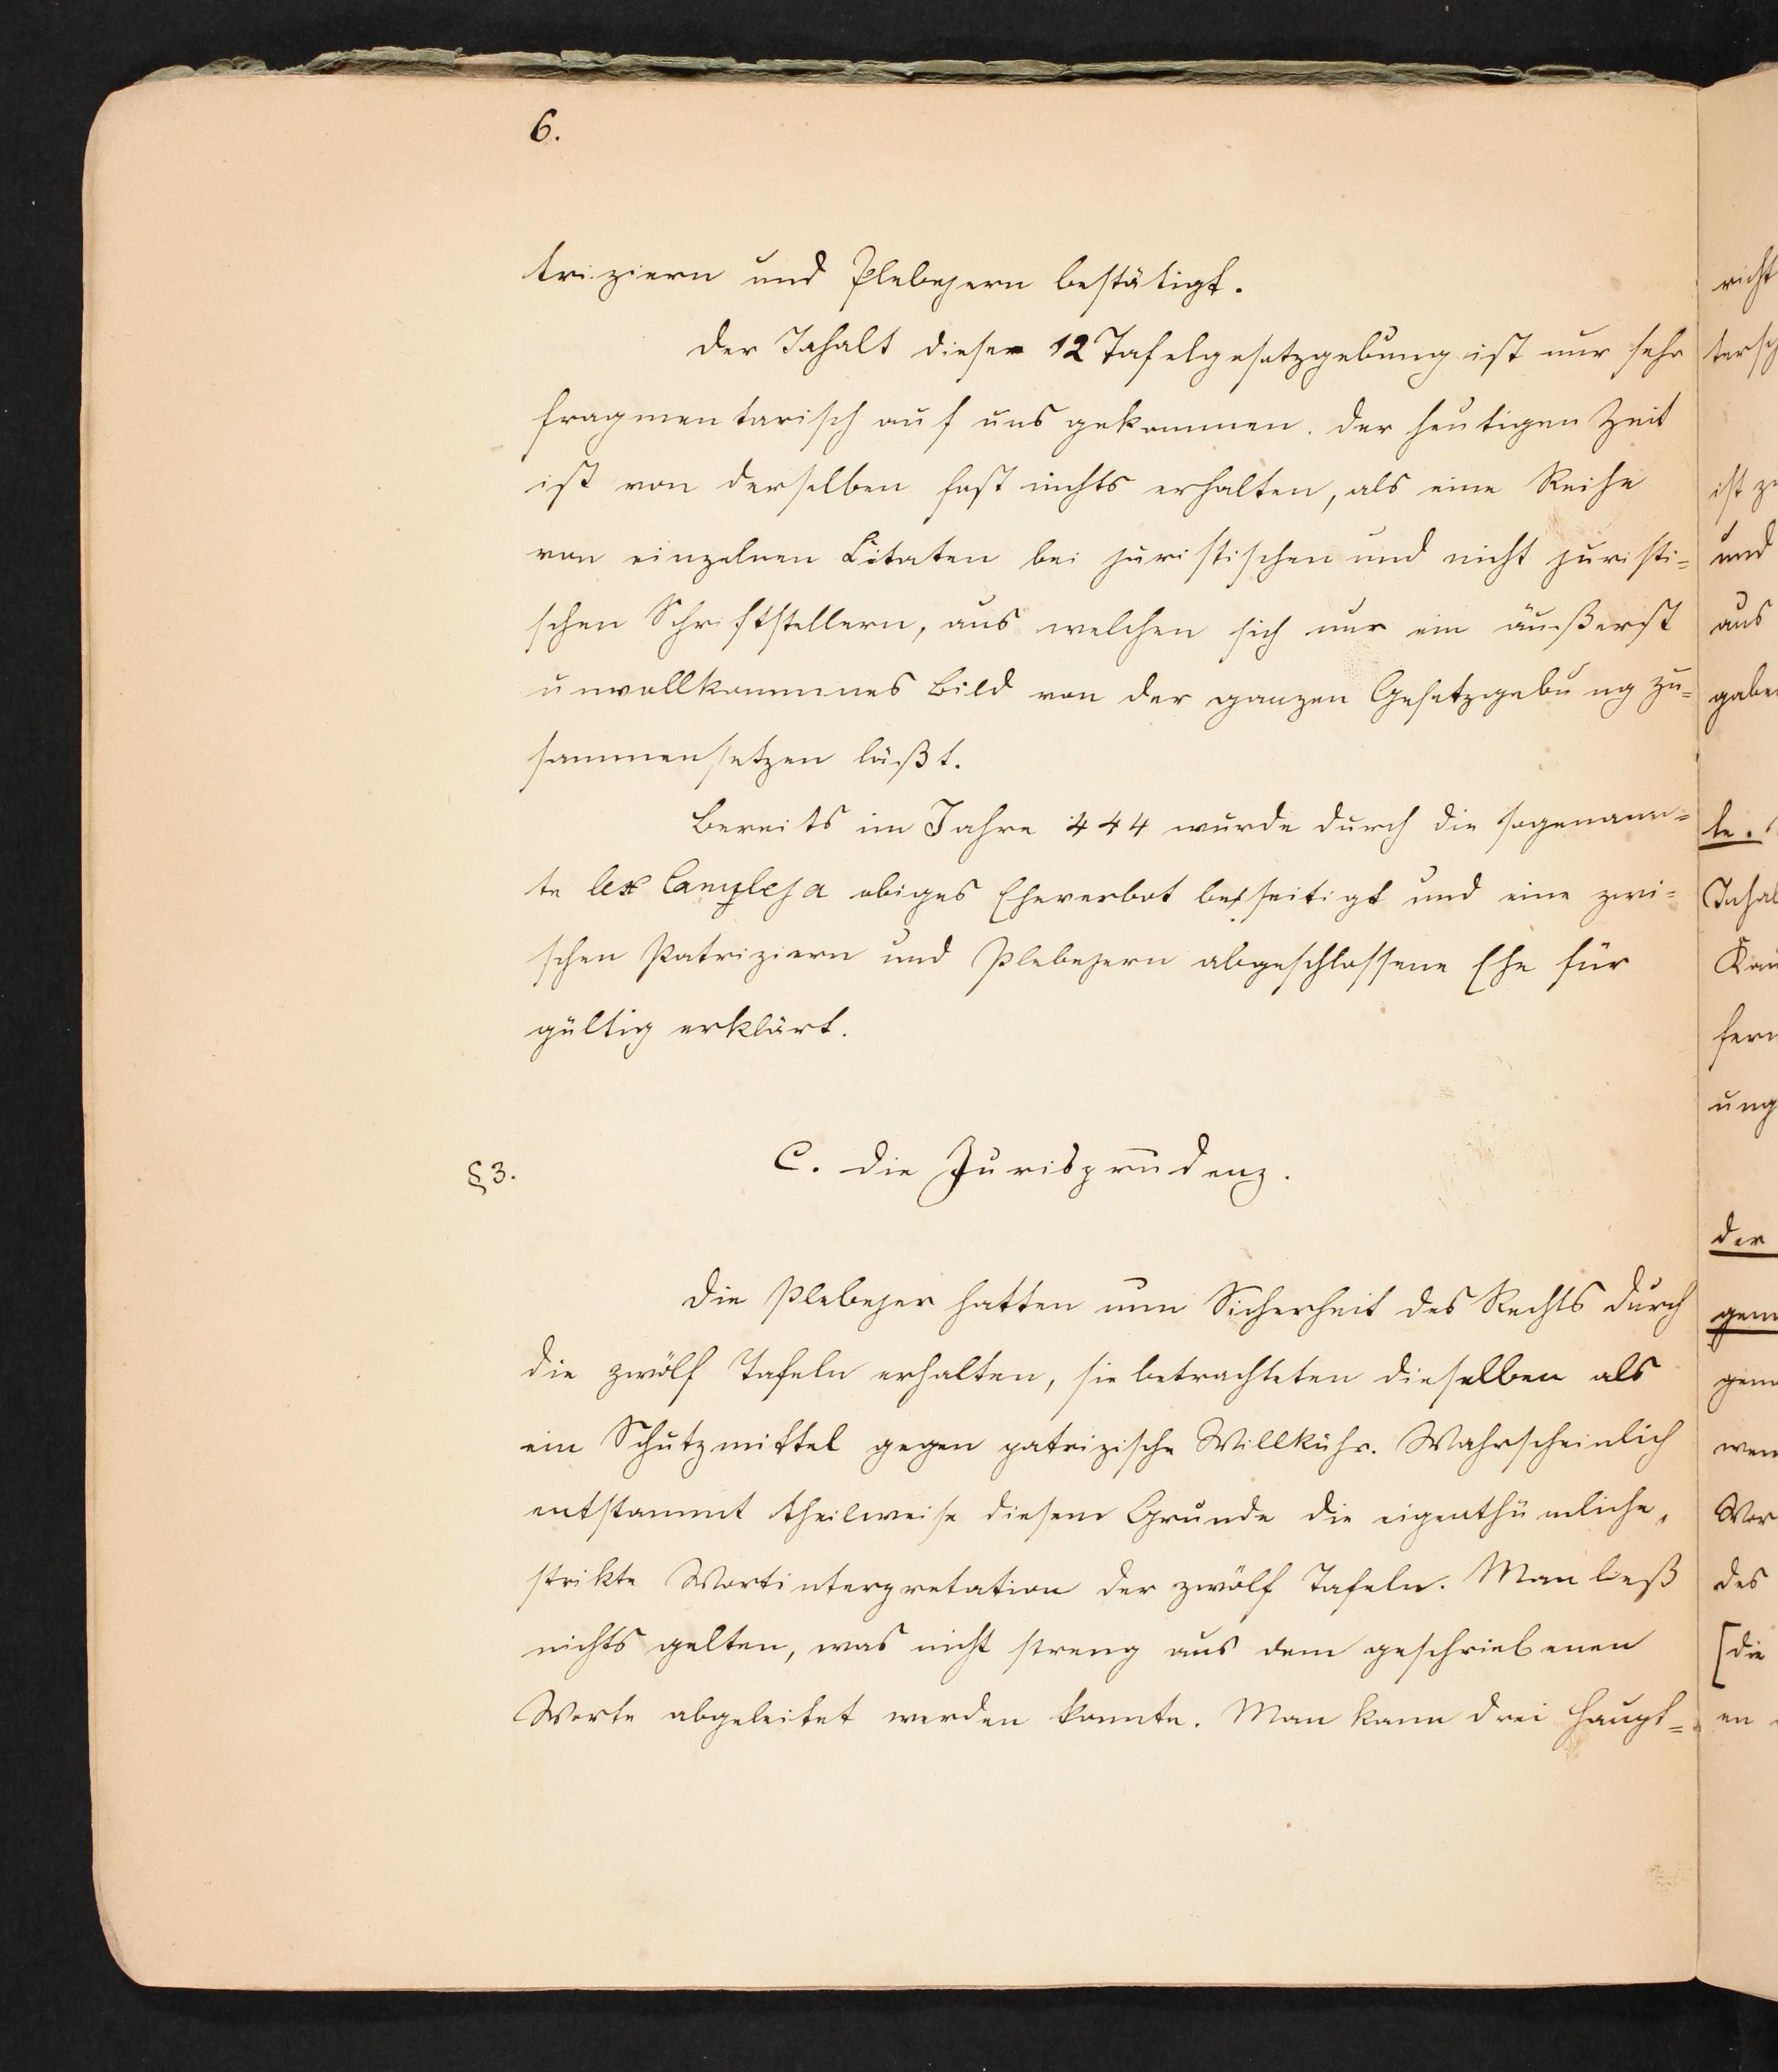 6.
triziern und Plebejern bestätigt.
Der Inhalt dieser 12 Tafelgesetzgebung ist nur sehr
fragmentarisch auf uns gekommen. Der heutigen Zeit
ist von derselben fast nichts erhalten, als eine Reihe
von einzelnen Citaten bei juristischen und nicht juristi=
schen Schriftstellern, aus welchen sich nur ein äußerst
unvollkommnes Bild von der ganzen Gesetzgebung zu=
sammensetzen läßt.
Bereits im Jahre 444 wurde durch die sogenann=
te lex obiges Eheverbot beseitigt und eine zwi=
schen Patriziern und Plebejern abgeschlossene Ehe für
gültig erklärt.
§ 3. C. Die Jurisprudenz.
Die Plebejer hatten nun Sicherheit des Rechts durch
die zwölf Tafeln erhalten, sie betrachteten dieselben als
ein Schutzmittel gegen patrizische Willkühr. Wahrscheinlich
entstammt theilweise diesem Grunde die eigenthümliche,
strikte Wortinterpretation der zwölf Tafeln. Man ließ
nichts gelten, was nicht streng aus dem geschriebenen
Worte abgeleitet werden konnte. Man kann drei Haupt=
richt
tersch
ist zu
und
aus
gabe
te.
Inhal
Kau
fern
ung
der
gem
gem
wen
Wor
des
[die
en